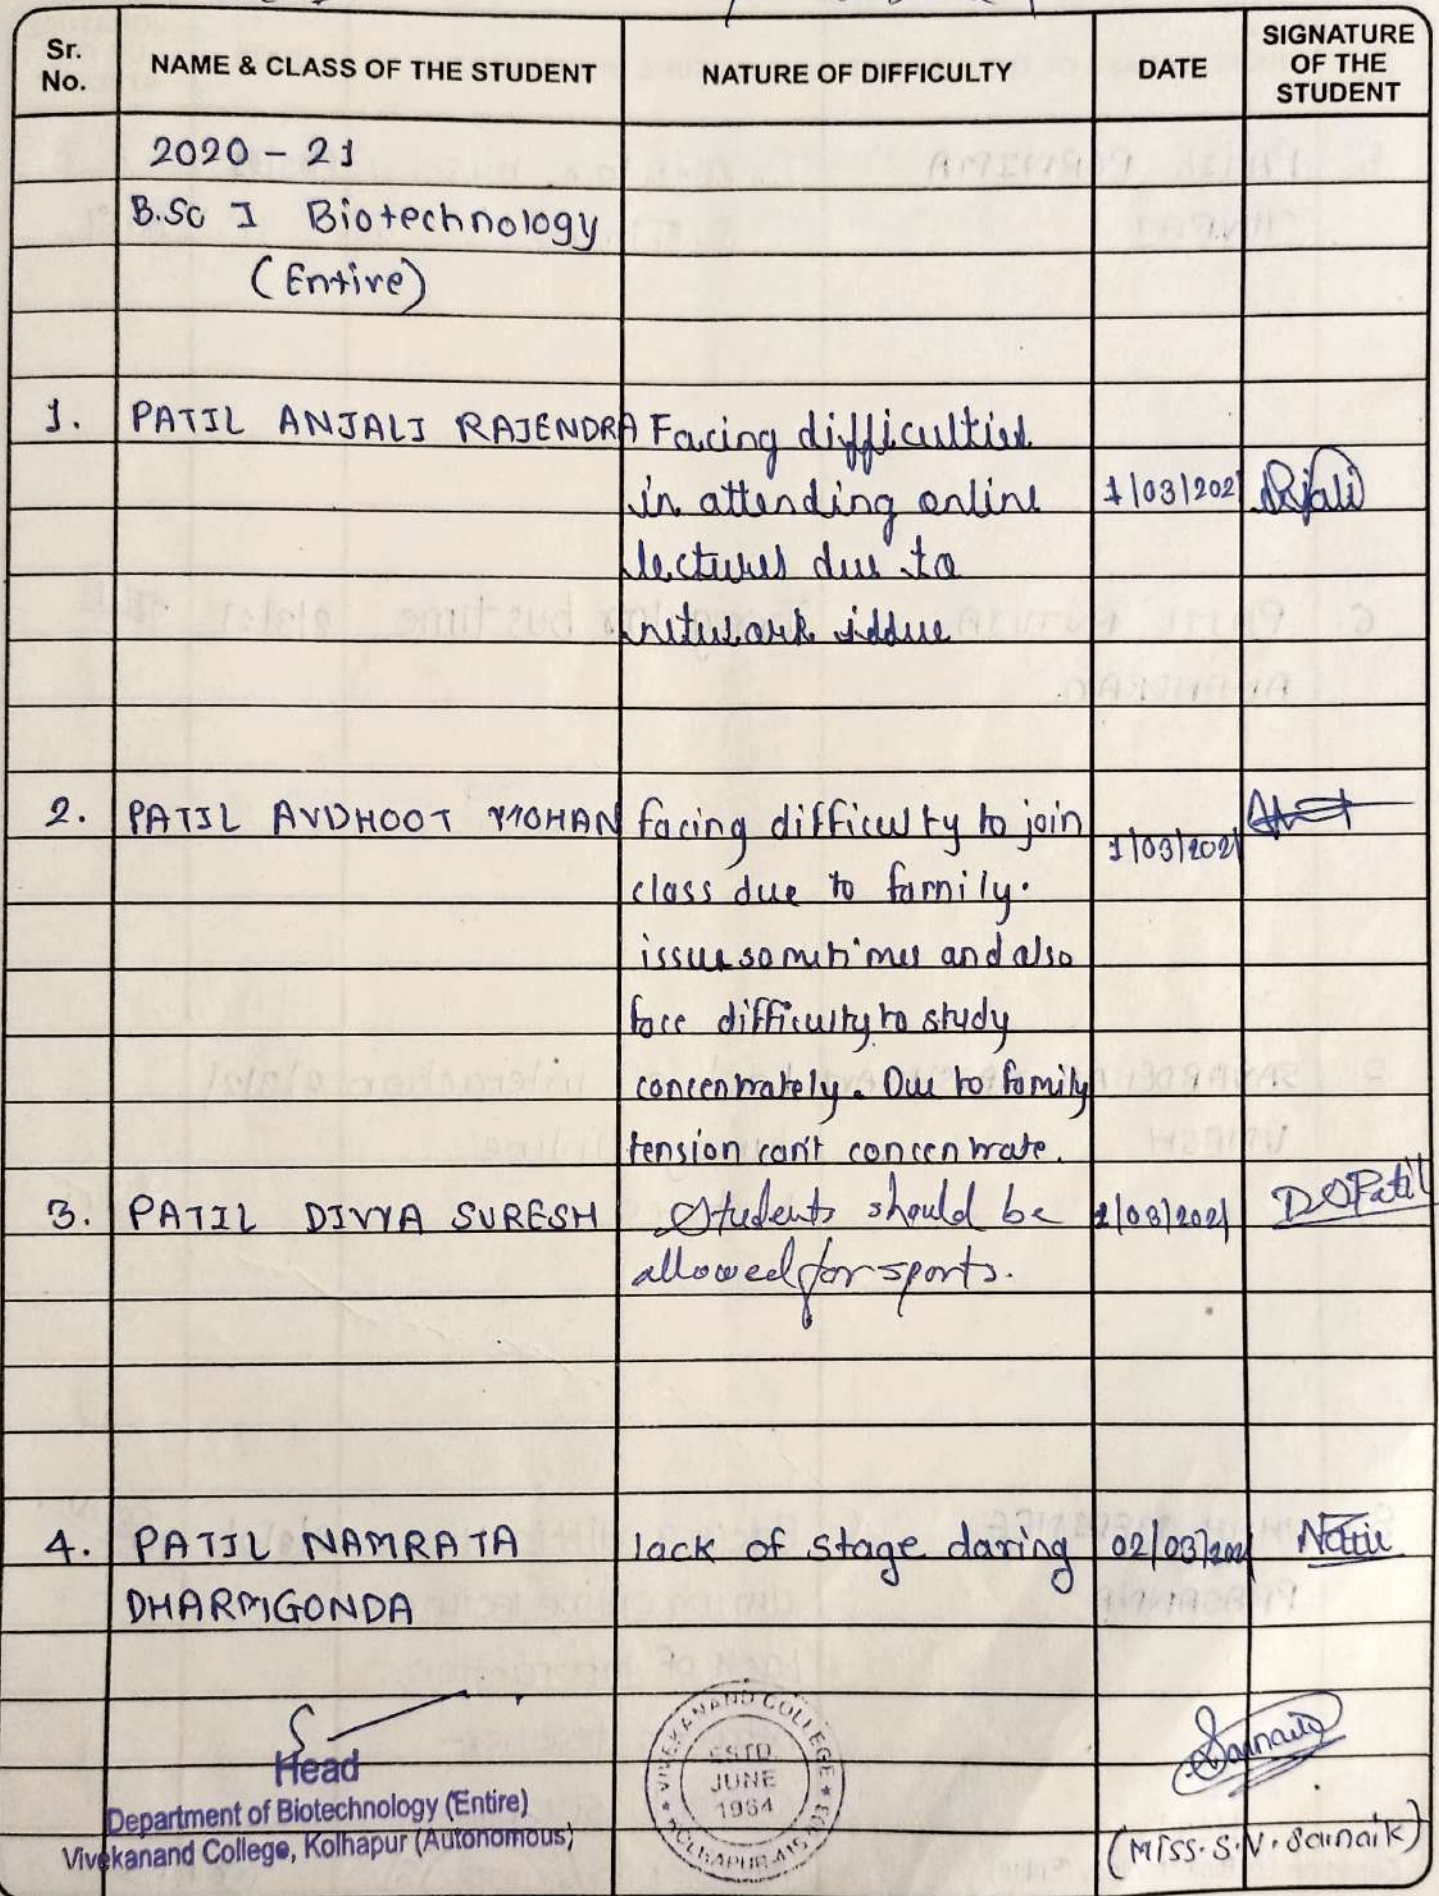 Sr. No.
NAME & CLASS OF THE STUDENT
NATURE OF DIFFICULTY
DATE
SIGNATURE OF THE STUDENT
2020 - 21
B.Sc I Biotechnology
(Entire)
1. PATIL ANJALI RAJENDRA Facing difficulties
in attending online 1/03/202 Anjali
lectures due to
network iddue
2. PATIL AVDHOOT MOHAN facing difficulty to join
1/03/2021
class due to family.
issue sometimes and also
face difficulty to study
concentrately. Due to family
tension can't concentrate.
3. PATIL DIVYA SURESH Students should be 1/03/2021 DSPatil
allowed for sports.
4. PATIL NAMRATA lack of stage daring 02/03/202
DHARMGONDA
Head
Department of Biotechnology (Entire)
Vivekanand College, Kolhapur (Autonomous)
VIVEKANAND COLLEGE
ESTD
JUNE
1964
KOLHAPUR
(Miss. S. V. Sainaik)